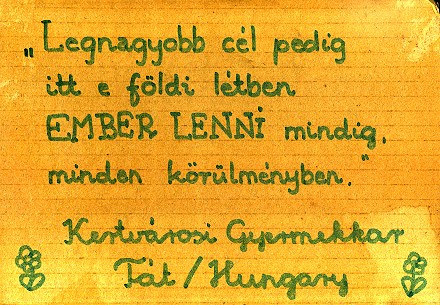 „Legnagyobb cél pedig
itt e földi létben
EMBER LENNI mindig,
minden körülményben.”
Kertvárosi Gyermekkar
Tát / Hungary